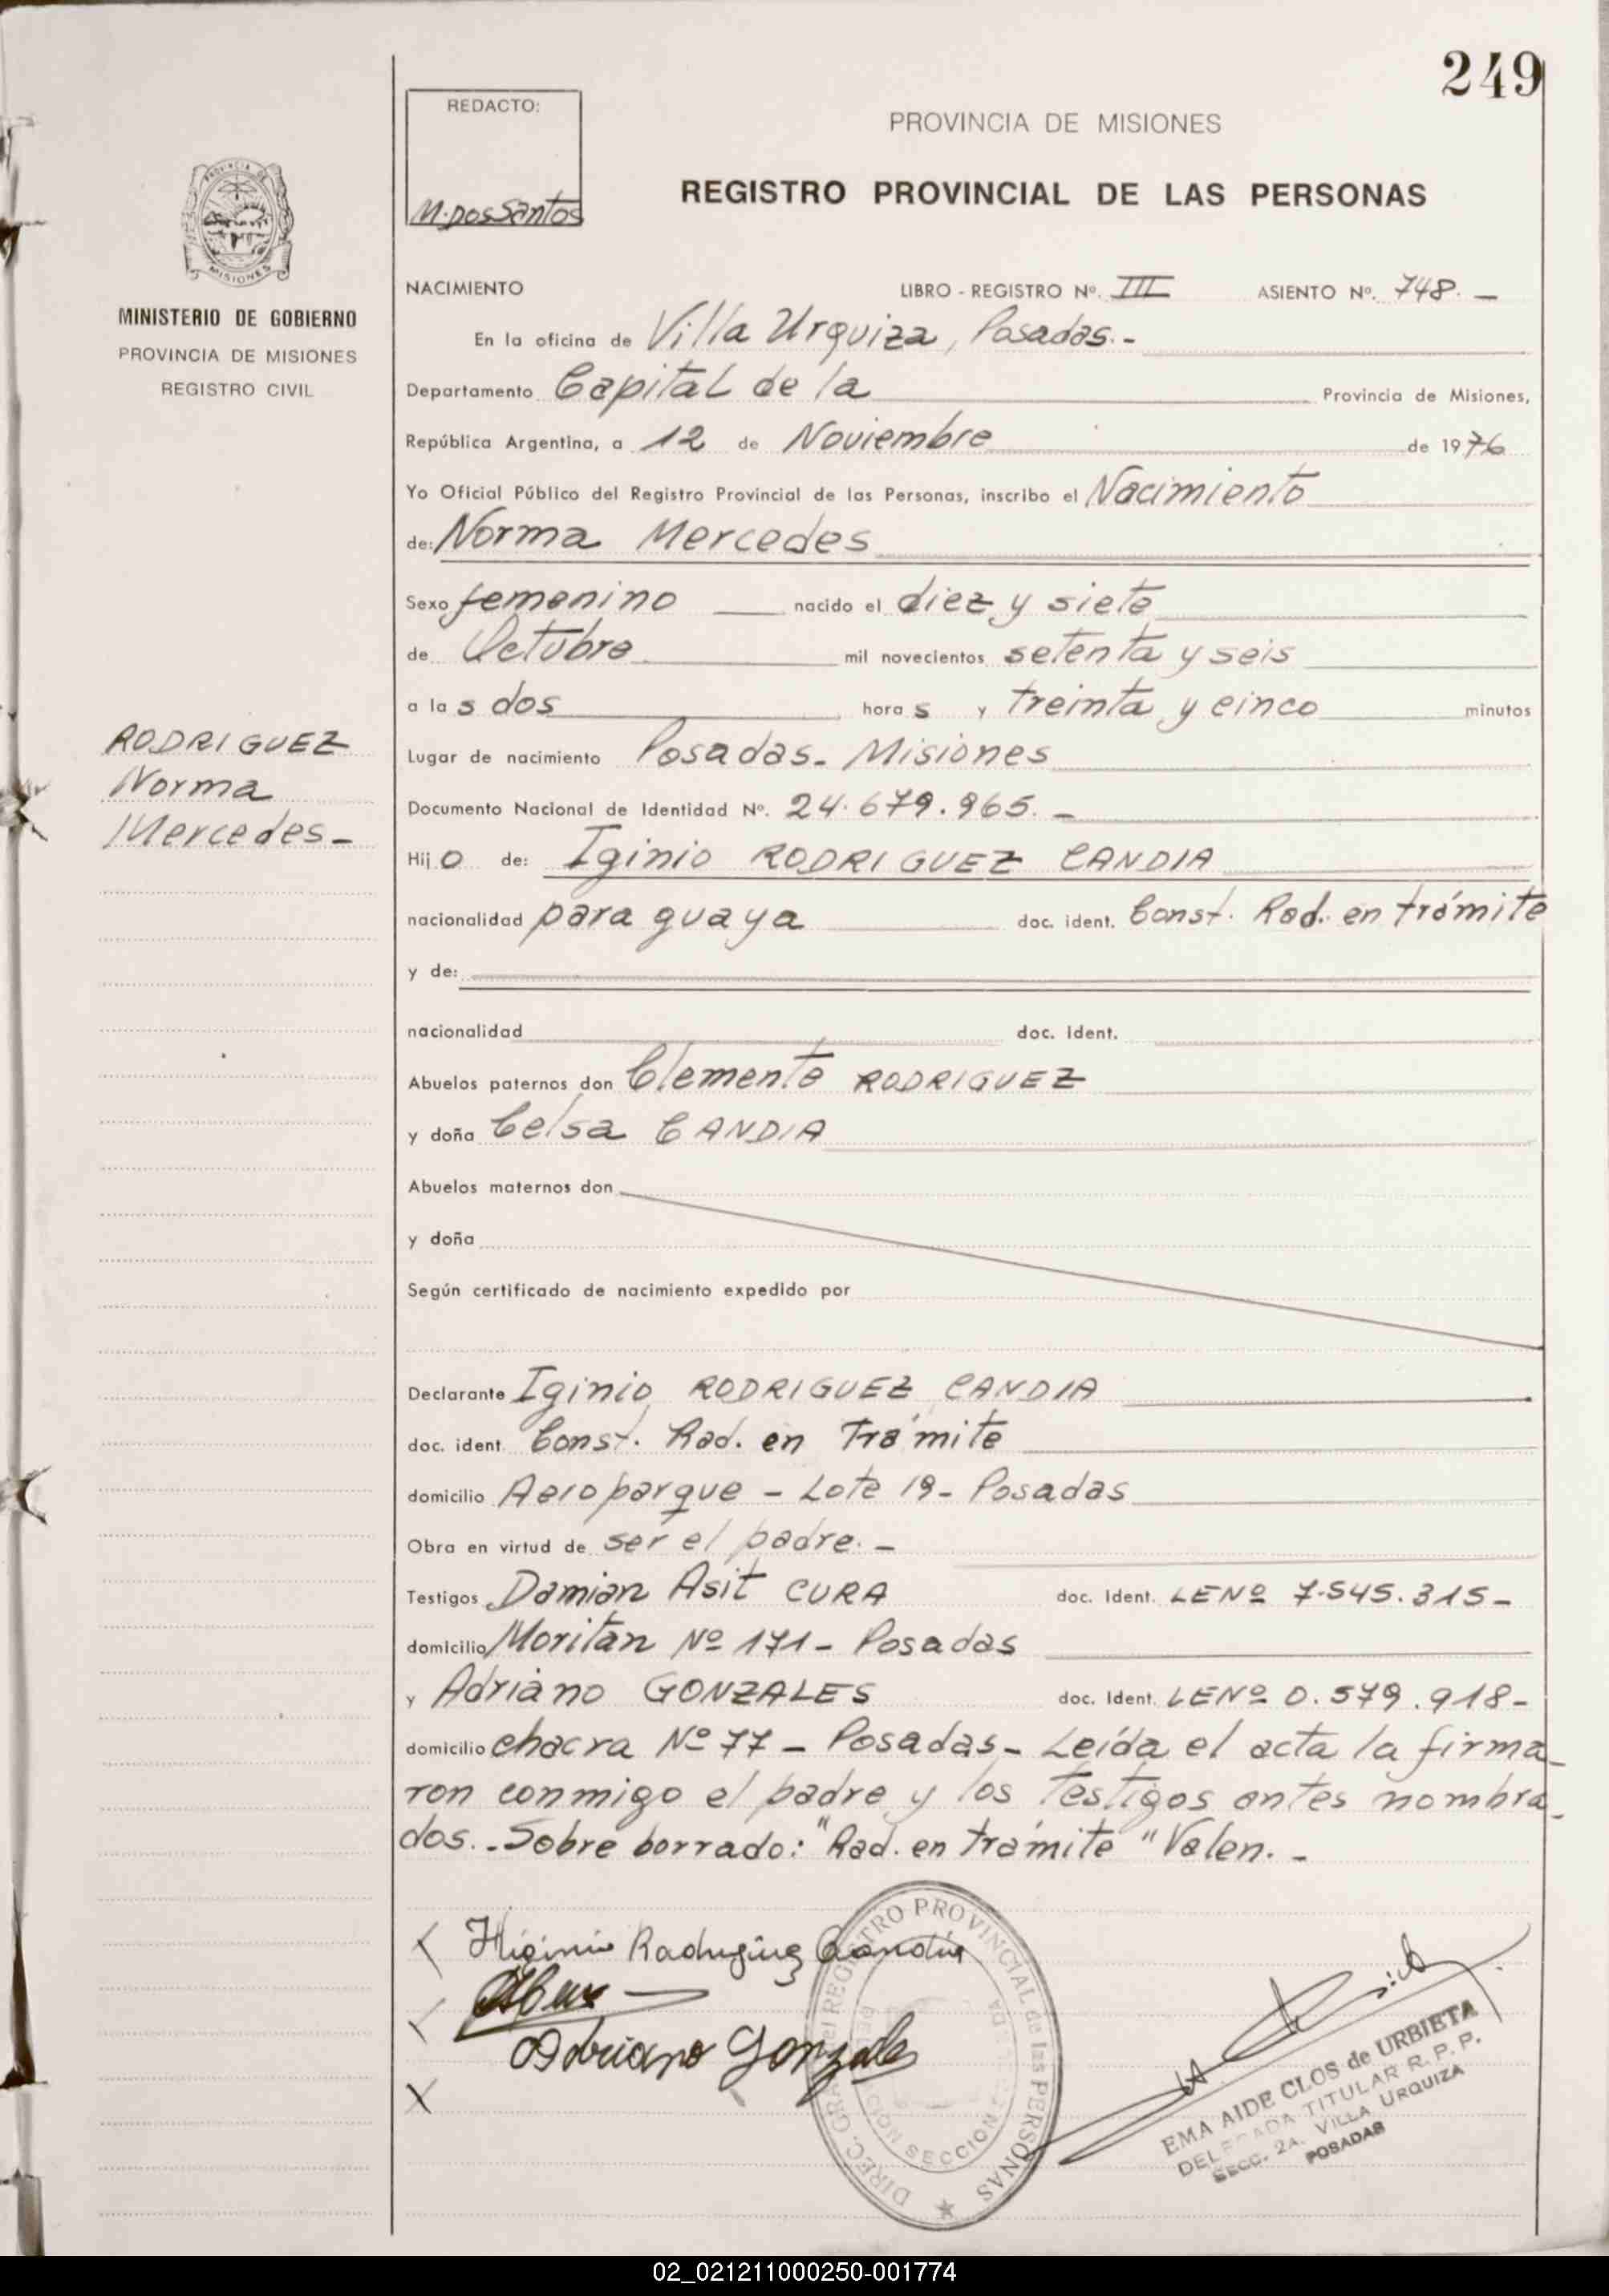 249
REDACTO:
M. Dos Santos
PROVINCIA DE MISIONES
REGISTRO PROVINCIAL DE LAS PERSONAS
PROVINCIA DE MISIONES
MINISTERIO DE GOBIERNO
PROVINCIA DE MISIONES
REGISTRO CIVIL
NACIMIENTO LIBRO - REGISTRO Nº. III ASIENTO Nº. 748. -
En la oficina de Villa Urquiza, Posadas. -
Departamento Capital de la Provincia de Misiones,
República Argentina, a 12 de Noviembre de 1976
Yo Oficial Público del Registro Provincial de las Personas, inscribo el Nacimiento
de: Norma Mercedes
Sexo femenino nacido el diez y siete
de Octubre mil novecientos setenta y seis
a las dos horas y treinta y cinco minutos
RODRIGUEZ
Norma
Mercedes -
Lugar de nacimiento Posadas - Misiones
Documento Nacional de Identidad Nº. 24.679.965. -
Hijo de: Iginio RODRIGUEZ CANDIA
nacionalidad paraguaya doc. ident. Const. Rad. en trámite
y de:
nacionalidad doc. ident.
Abuelos paternos don Clemente RODRIGUEZ
y doña Celsa CANDIA
Abuelos maternos don
y doña
Según certificado de nacimiento expedido por
Declarante Iginio RODRIGUEZ CANDIA
doc. ident. Const. Rad. en Trámite
domicilio Aeroparque - Lote 19 - Posadas
Obra en virtud de ser el padre. -
Testigos Damian Asit CURA doc. Ident. LE Nº 7.545.315 -
domicilio Moritan Nº 171 - Posadas
y Adriano GONZALES doc. Ident. LE Nº 0.579.918 -
domicilio chacra Nº 77 - Posadas - Leída el acta la firma-
ron conmigo el padre y los Testigos antes nombra-
dos. - Sobre borrado: "Rad. en trámite" Valen. -
Higinio Rodriguez Candia
Adriano Gonzales
DIREC. GRAL del REGISTRO PROVINCIAL de las PERSONAS
SECCION
EMA AIDE CLOS de URBIETA
DELEGADA TITULAR R. P. P.
SECC. 2A. VILLA URQUIZA
POSADAS
02_021211000250-001774